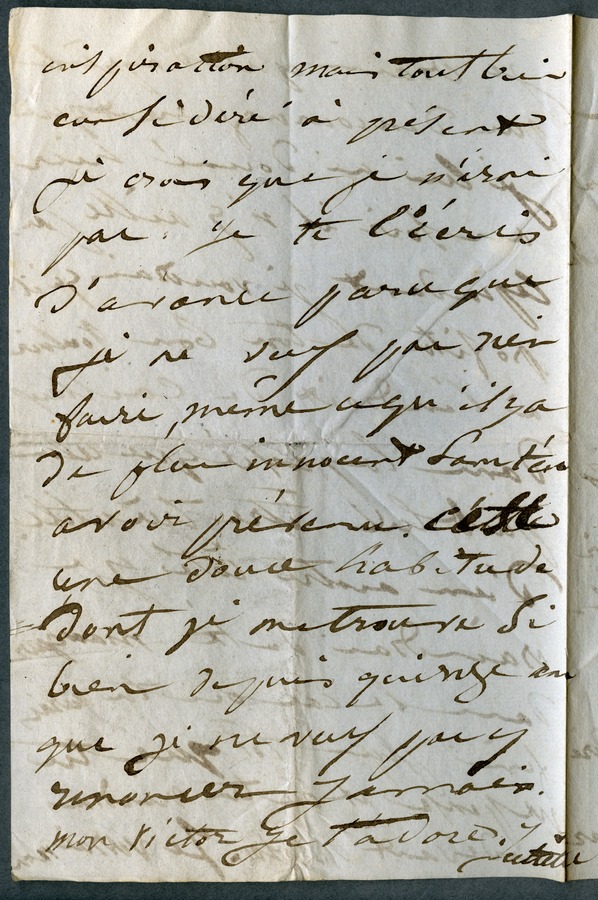 inspiration mais tout bien
considéré à présent
je crois que je n'irai
pas. Je te l'écris
d'avance parce que
je ne veux pas rien
faire, même ce qu'il y a
de plus innocent sans t'en
avoir prévenu. C'est
une douce habitude
dont je me trouve si
bien depuis quinze ans
que je ne veux pas y
renoncer jamais.
mon Victor je t'adore. J
uliette